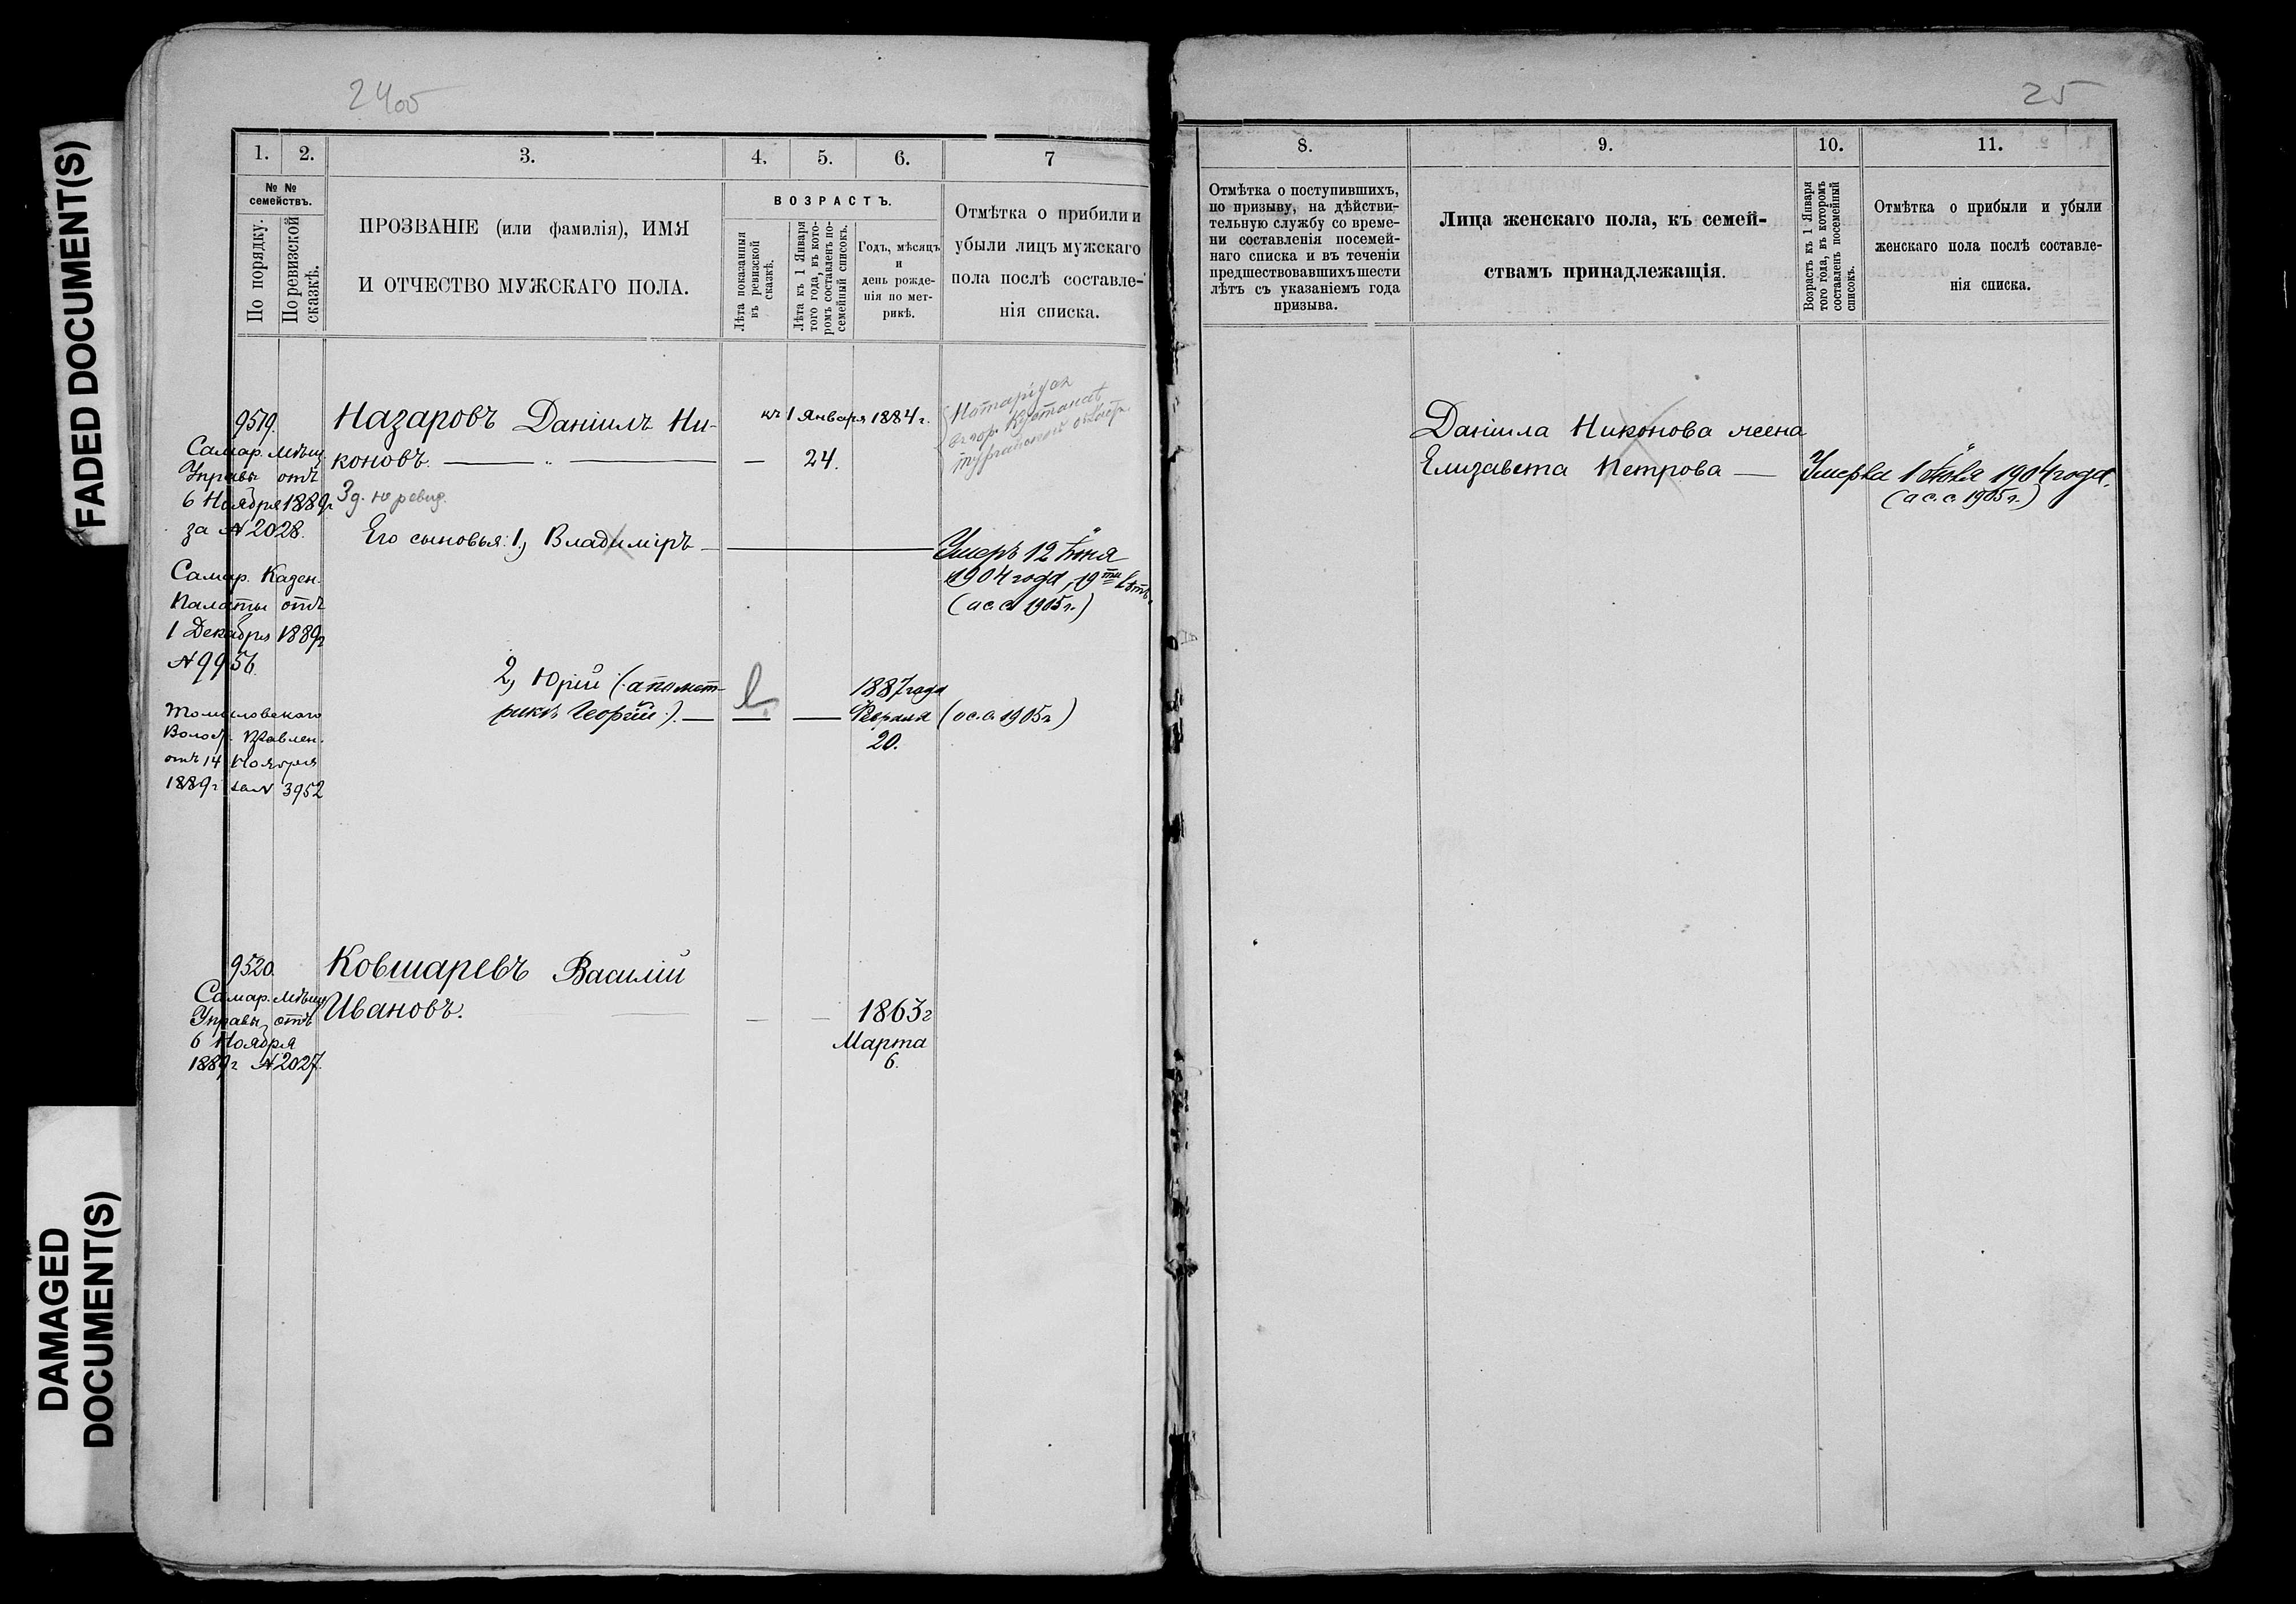 FADED DOCUMENT(S)
DAMAGED
DOCUMENT(S)
2400
1.
2.
3.
4.
5.
6.
7
№ №
семействъ.
По порядку.
По ревизской
сказкѣ.
ПРОЗВАНІЕ (или фамилія), ИМЯ
И ОТЧЕСТВО МУЖСКАГО ПОЛА.
ВОЗРАСТЪ.
Лѣта показанныя
въ ревизской
сказкѣ.
Лѣта къ 1 Января
того года, въ кото-
ромъ составленъ по-
семейный списокъ.
Годъ, мѣсяцъ
и
день рожде-
нія по мет-
рикѣ.
Отмѣтка о прибыли и
убыли лицъ мужскаго
пола послѣ составле-
нія списка.
9519.
Самар. Мѣщ.
Управы отъ
6 Ноября 1889г
за № 2028.
Самар. Казен.
Палаты отъ
1 Декабря 1889г
№ 9956.
Томиловскаго
Волост. Правлен.
отъ 14 Ноября
1889г за № 3952
Назаровъ Даніилъ Ни-
коновъ. — — 24.
къ 1 Января 1884 г.
Нотаріус
въ гор. Кустанаѣ
Тургайской област.
Его сыновья: 1, Владиміръ
Умеръ 12 Іюня
1904 года, 19ти лѣтъ.
(ас.с. 1905 г.)
2, Юрій (а по мет-
рикѣ Георгій). — — —
1887 года
Февраля (ас.с. 1905 г)
20.
9520.
Самар. Мѣщ.
Управы отъ
6 Ноября
1889г № 2027.
Ковшаревъ Василій
Ивановъ. — —
1863 г
Марта
6.
25
8.
9.
10.
11.
Отмѣтка о поступившихъ,
по призыву, на дѣйстви-
тельную службу со време-
ни составленія посемей-
наго списка и въ теченіи
предшествовавшихъ шести
лѣтъ съ указаніемъ года
призыва.
Лица женскаго пола, къ семей-
ствамъ принадлежащія.
Возрастъ къ 1 Января
того года, въ которомъ
составленъ посемейный
списокъ.
Отмѣтка о прибыли и убыли
женскаго пола послѣ составле-
нія списка.
Даніила Никонова жена
Елизавета Петрова — Умерла 1 Іюля 1904 года.
(ас.с. 1905 г.)